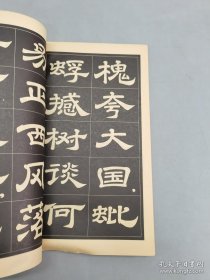 槐夸大国，蚍
蜉撼树谈何
易正西风落